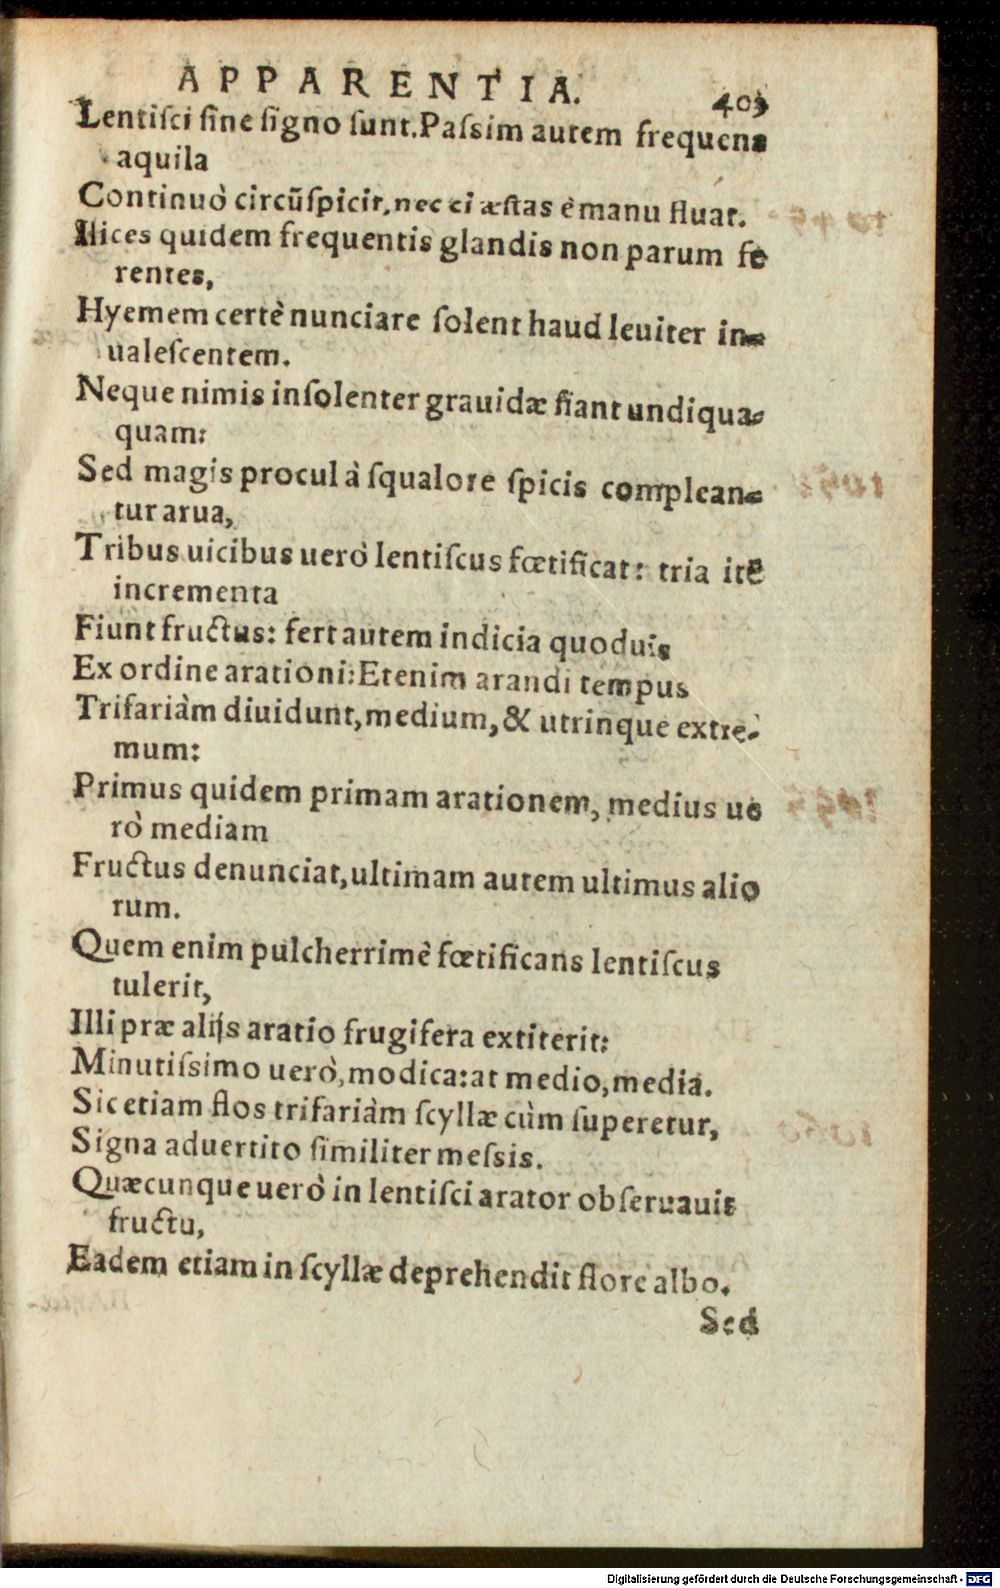 APPARENTIA. 403
Lentiſci ſine ſigno ſunt. Paſsim autem frequens
aquila
Continuò circũſpicit, nec ei æſtas è manu fluat.
Ilices quidem frequentis glandis non parum fe
rentes,
Hyemem certè nunciare ſolent haud leuiter in-
ualeſcentem.
Neque nimis inſolenter grauidæ fiant undiqua-
quam:
Sed magis procul à ſqualore ſpicis complean-
tur arua,
Tribus uicibus uerò lentiſcus fœtificat: tria itẽ
incrementa
Fiunt fructus: fert autem indicia quoduis
Ex ordine arationi: Etenim arandi tempus
Trifariàm diuidunt, medium, & utrinque extre-
mum:
Primus quidem primam arationem, medius ue
rò mediam
Fructus denunciat, ultimam autem ultimus alio
rum.
Quem enim pulcherrimè fœtificans lentiſcus
tulerit,
Illi præ alijs aratio frugifera extiterit:
Minutiſsimo uerò, modica: at medio, media.
Sic etiam flos trifariàm ſcyllæ cùm ſuperetur,
Signa aduertito ſimiliter meſsis.
Quæcunque uerò in lentiſci arator obſeruauit
fructu,
Eadem etiam in ſcyllæ deprehendit flore albo.
Sed
Digitalisierung gefördert durch die Deutsche Forschungsgemeinschaft - DFG